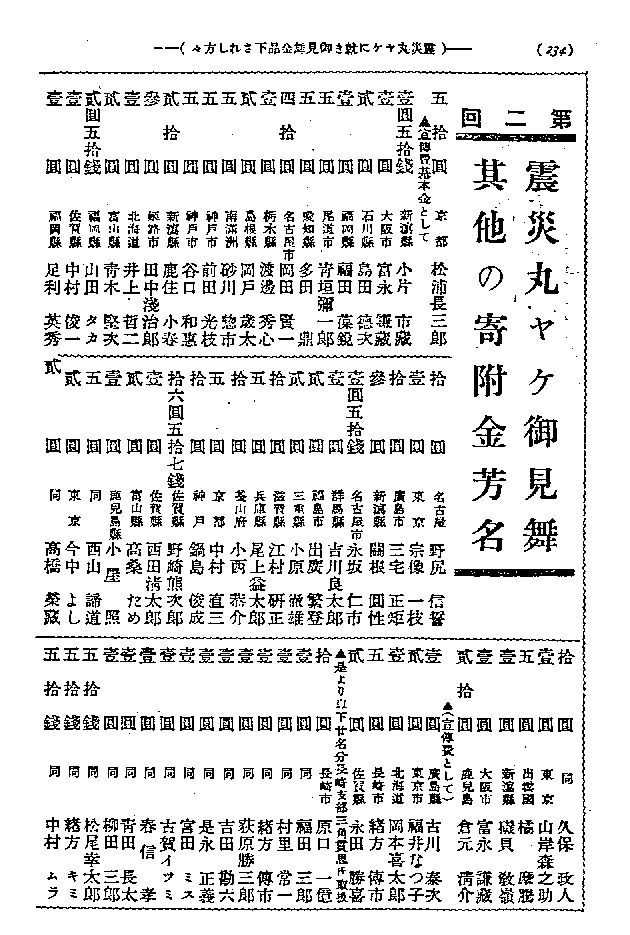 (234)
――(震災丸ヤケに就き御見舞金品下されし方々)――
第二回
震災丸ヤケ御見舞
其他の寄附金芳名
五拾圓 京都 松浦長三郎
▲宣傳費基本金として
壹圓五拾錢 新潟縣 小片市藏
壹圓 大阪市 富永謙藏
五圓 石川縣 島田德次
壹圓 福岡縣 福田葆鏡
五圓 尾道市 青垣彌一郎
五圓 愛知縣 多田鼎
四拾圓 名古屋市 岡田賢一
壹圓 栃木縣 渡邊秀心
貳圓 島根縣 岡戸歳太
五圓 南滿洲 砂川惣市
五圓 神戸市 前田光枝
五圓 神戸市 谷口和惠
貳拾圓 新潟縣 鹿住小春
參圓 姫路市 田中淺治郎
壹圓 北海道 井上哲二
貳圓 富山縣 青木堅次
貳圓五拾錢 福岡縣 山田タカ
壹圓 佐賀縣 中村俊一
壹圓 福岡縣 足利英秀
拾圓 名古屋 野尻信誓
壹圓 東京 宗像一枝
拾圓 廣島市 三宅正矩
參圓 新潟縣 關根圓性
壹圓五拾錢 名古屋市 永坂仁市
壹圓 群馬縣 吉川良太郎
貳圓 福島市 出廣繁登
貳圓 三重縣 小原徹雄
五圓 滋賀縣 江村研正
拾圓 兵庫縣 尾上益太郎
五圓 釜山府 小西恭介
拾圓 京都 中村直三
拾圓 神戸 鍋島俊成
拾六圓五拾七錢 佐賀縣 野崎熊次郎
壹圓 佐賀縣 西田淸太郎
貳圓 富山縣 高桑ため
壹圓 鹿兒島縣 小屋照
五圓 同 西山諦道
貳圓 東京 今中よし
貳圓 同 高橋榮藏
拾圓 同 久保政人
壹圓 東京 山岸森之助
五圓 出雲國 橘
壹圓 新潟縣 礒貝敎嶺
壹圓 大阪市 富永謙藏
貳拾圓 鹿兒島 倉元淸介
▲(宣傳費として)
壹圓 廣島縣 古川泰次
貳圓 東京市 福井なつ子
壹圓 北海道 岡本喜太郎
五圓 長崎市 緒方傳市
貳圓 佐賀縣 永田勝喜
▲是より以下廿名分長崎支部三角貫恩氏取扱
拾圓 長崎市 原口一億
壹圓 同 福田三郎
壹圓 同 村里常一
壹圓 同 緒方傳市
壹圓 同 荻原勝三郎
壹圓 同 吉田勘六
壹圓 同 是永正義
壹圓 同 宮田ミス
壹圓 同 古賀イツミ
壹圓 同 春信孝
壹圓 同 青田長太
壹圓 同 柳田三郎
五拾錢 同 松尾幸太郎
五拾錢 同 緒方キミ
五拾錢 同 中村ムラ